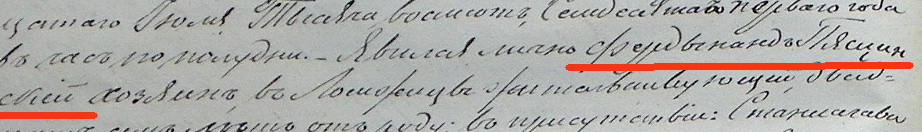 цатаго Іюля, Тысяча восмсотъ, Семдесятаго перваго года
въ часъ по полудни. – Явился лично Фердынандъ Пясцин
скій хозяинъ, въ Ломжицѣ жительствующій,
лѣтъ отъ роду; въ присутствіи: Станислава